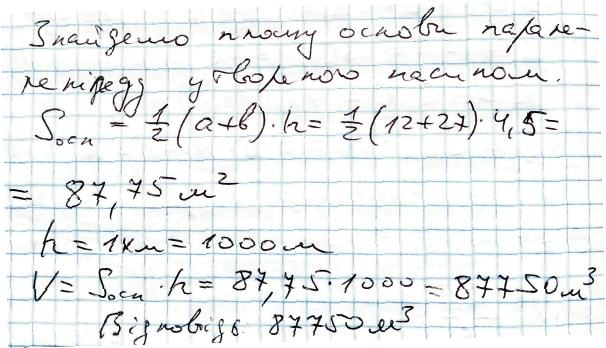 Знайдемо площу основи парале-
лепіпеду утвореного насипом.
Sосн = 1/2 (a+b)·h = 1/2 (12+27)·4,5 =
= 87,75 м²
h = 1км = 1000м
V = Sосн·h = 87,75·1000 = 87750м³
Відповідь 87750м³